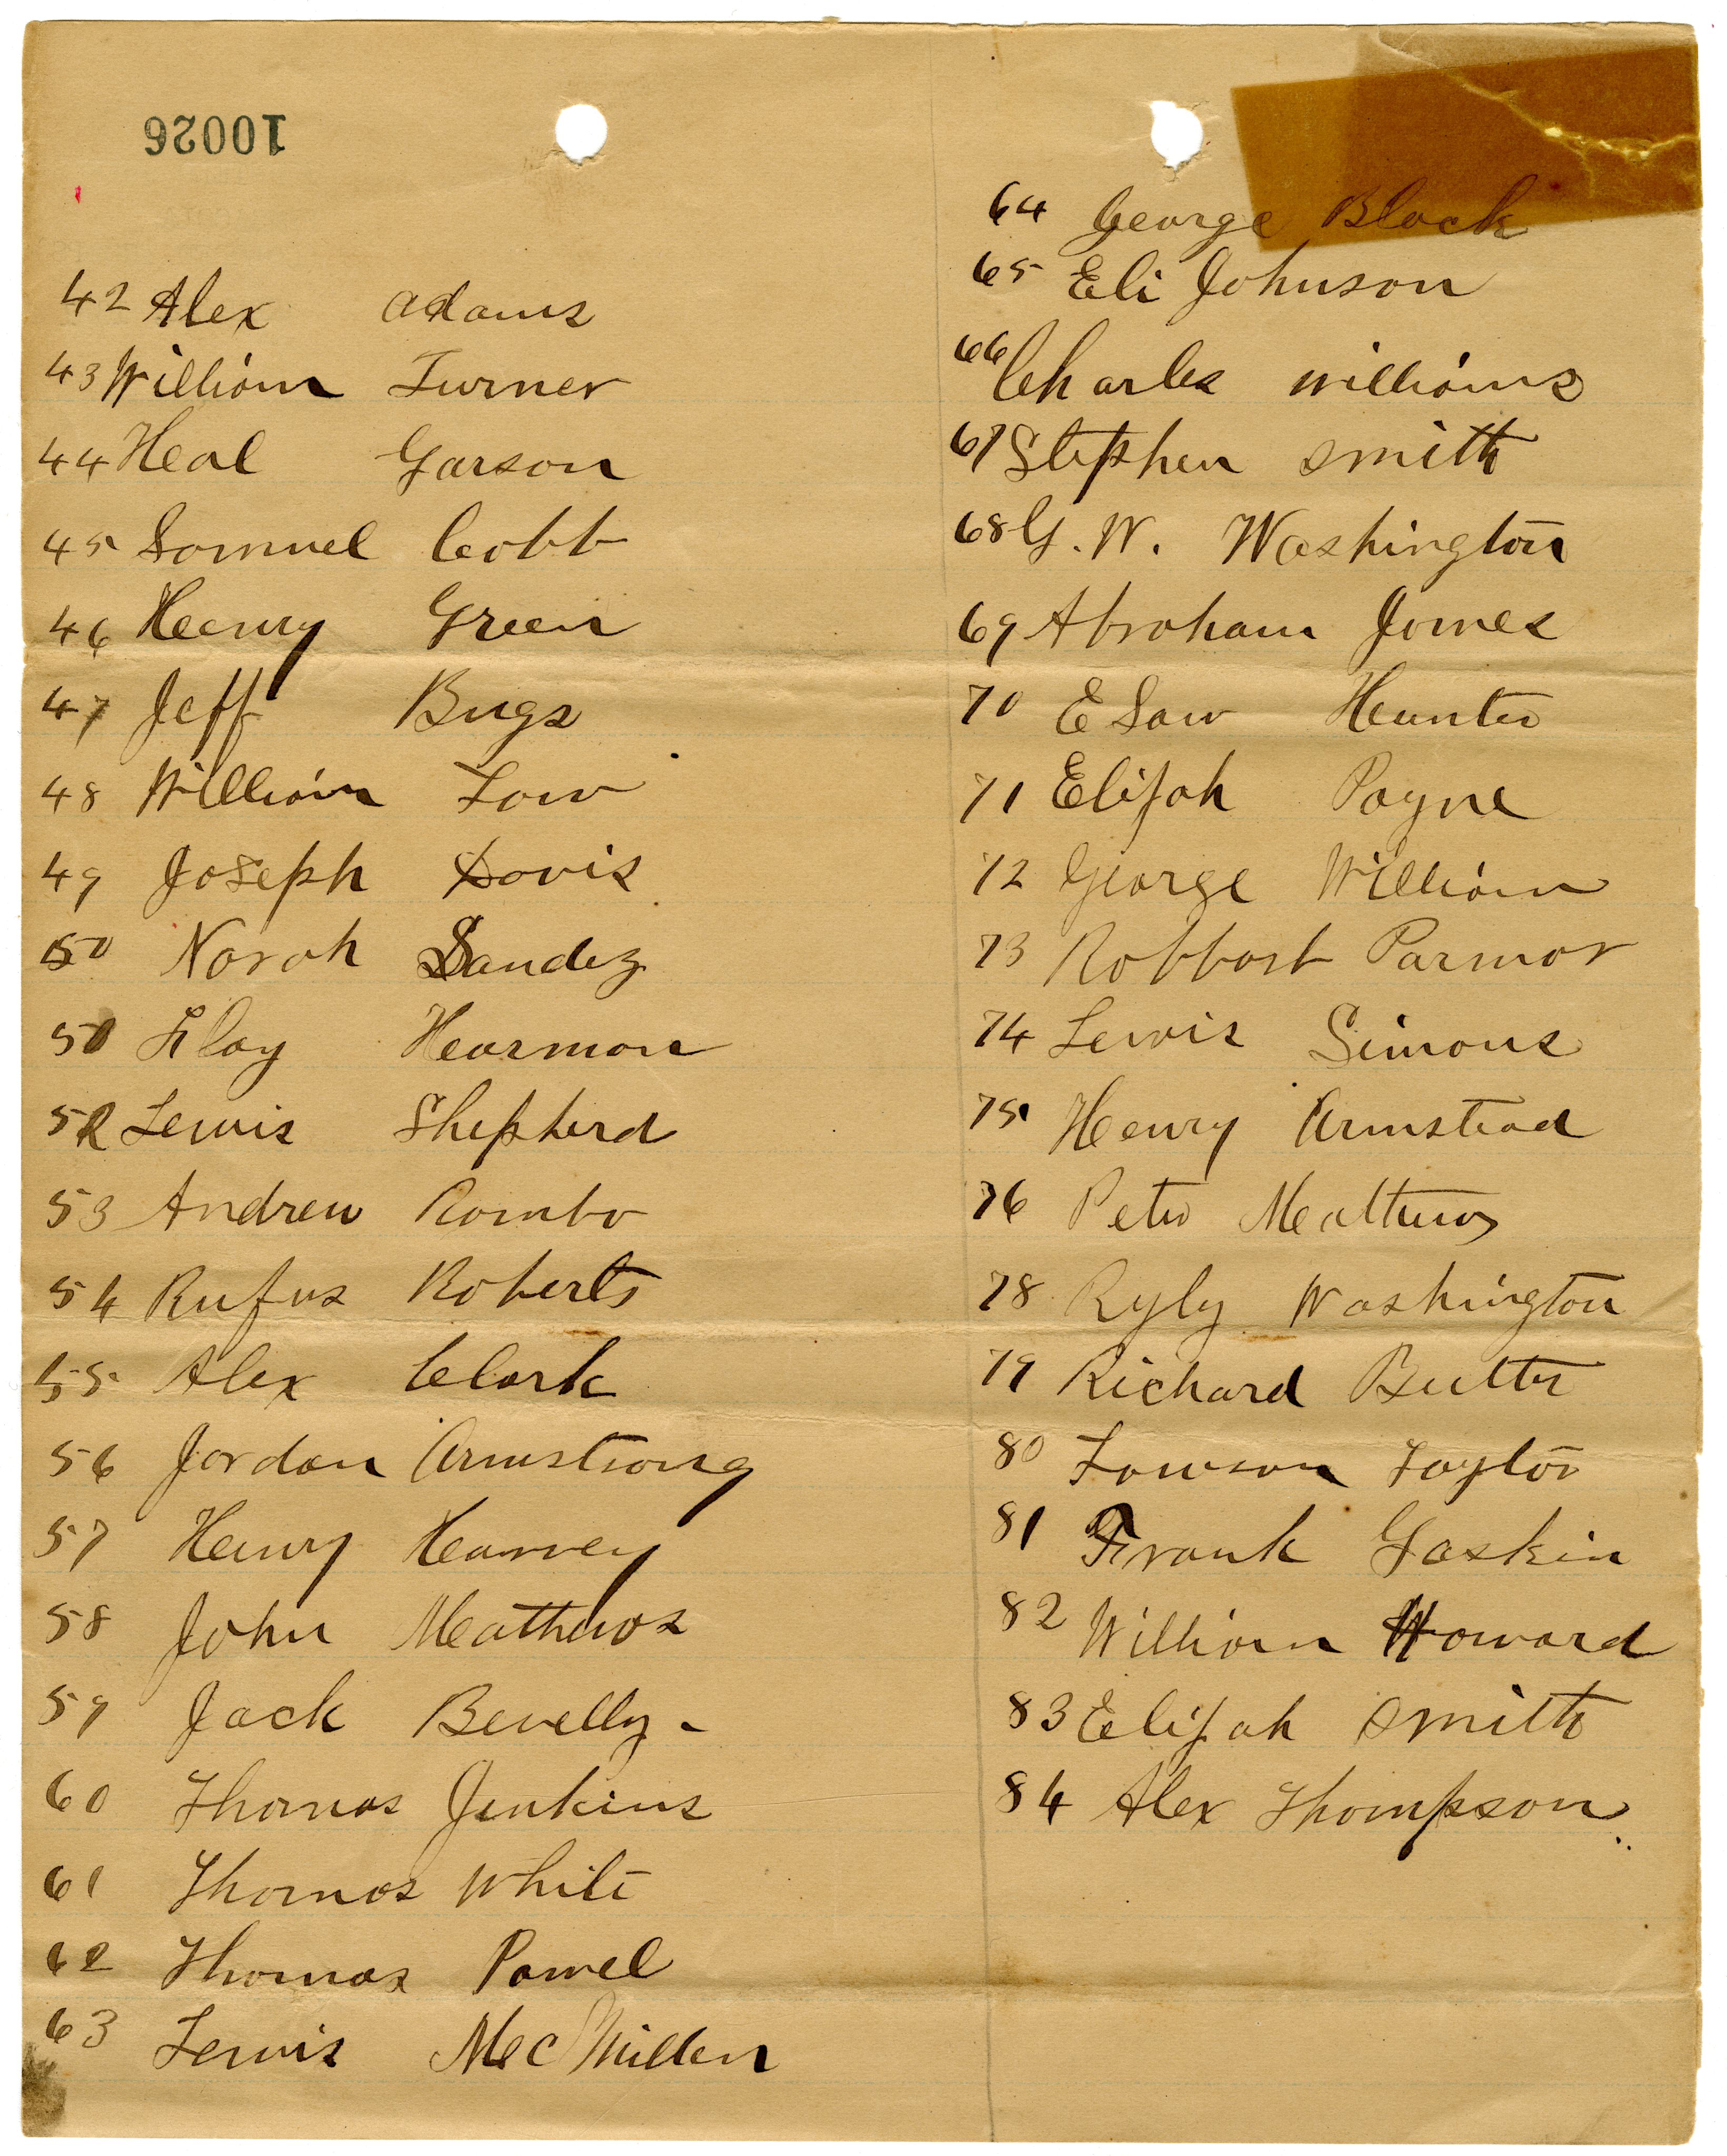 10026
42 Alex Adams
43 William Turner
44 Heal Garson
45 Samuel Cobb
46 Heenry Green
47 Jeff Bugs
48 William Low
49 Joseph Davis
50 Norah Sandez
51 Flay Hearmon
52 Lewis Shepherd
53 Andrew Rombo
54 Rufus Roberts
55 Alex Clark
56 Jordan Armstrong
57 Henry Hearvey
58 John Meathews
59 Jack Bevelly
60 Thomas Jenkins
61 Thomas White
62 Thomas Powel
63 Lewis MecMillen
64 George Black
65 Eli Johnson
66 Charles Williams
67 Stephen Smith
68 G. W. Washington
69 Abraham James
70 ESaw Heunter
71 Elijah Payne
72 George William
73 Robbart Parmor
74 Lewis Simons
75 Henry Armstead
76 Peter Meatthews
78 Ryly Washington
79 Richard Butter
80 Lowson Taylor
81 Frank Gaskin
82 William Howard
83 Elijah Smith
84 Alex Thompson